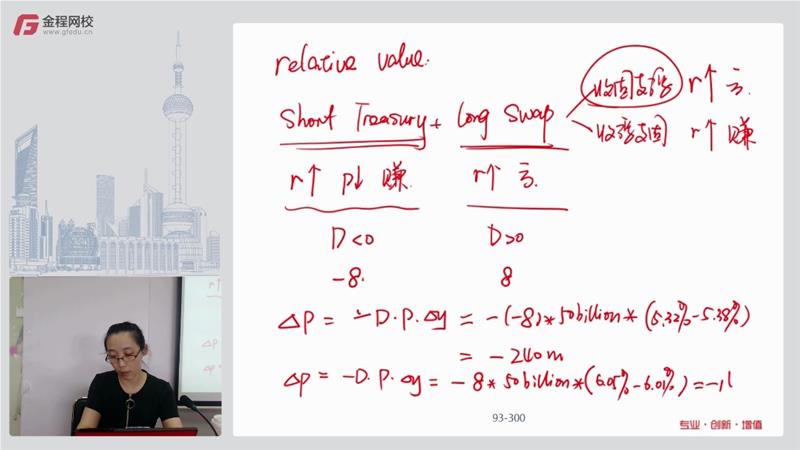 金程网校
www.gfedu.cn
relative value.
Short Treasury + Long Swap
收固支浮 r↑ 亏.
收浮支固 r↑ 赚
r↑ P↓ 赚. r↑ 亏.
D<0 D>0
-8. 8
ΔP = -D.P.Δy = -(-8)*50billion*(5.32%-5.38%)
= -240m
ΔP = -D.P.Δy = -8*50billion*(6.05%-6.01%)=-1
93-300
专业·创新·增值